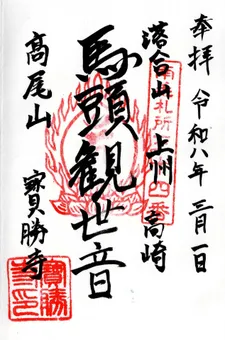 奉拝 令和八年 三月一日
落合山 上州 高崎
札所
四番
馬頭観世音
髙尾山 寳勝寺
寶勝